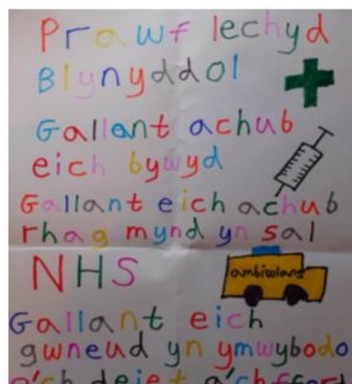 Prawf Iechyd
Blynyddol
Gallant achub
eich bywyd
Gallant eich achub
rhag mynd yn sal
NHS
ambiwlans
Gallant eich
gwneud yn ymwybodo
o'ch deiet a'ch